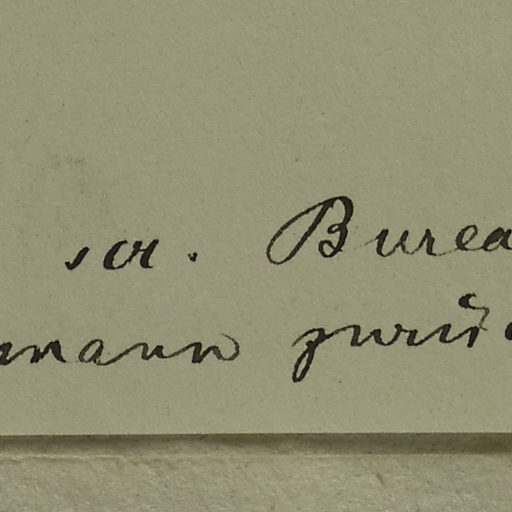 scr. Burea
mann zurüc